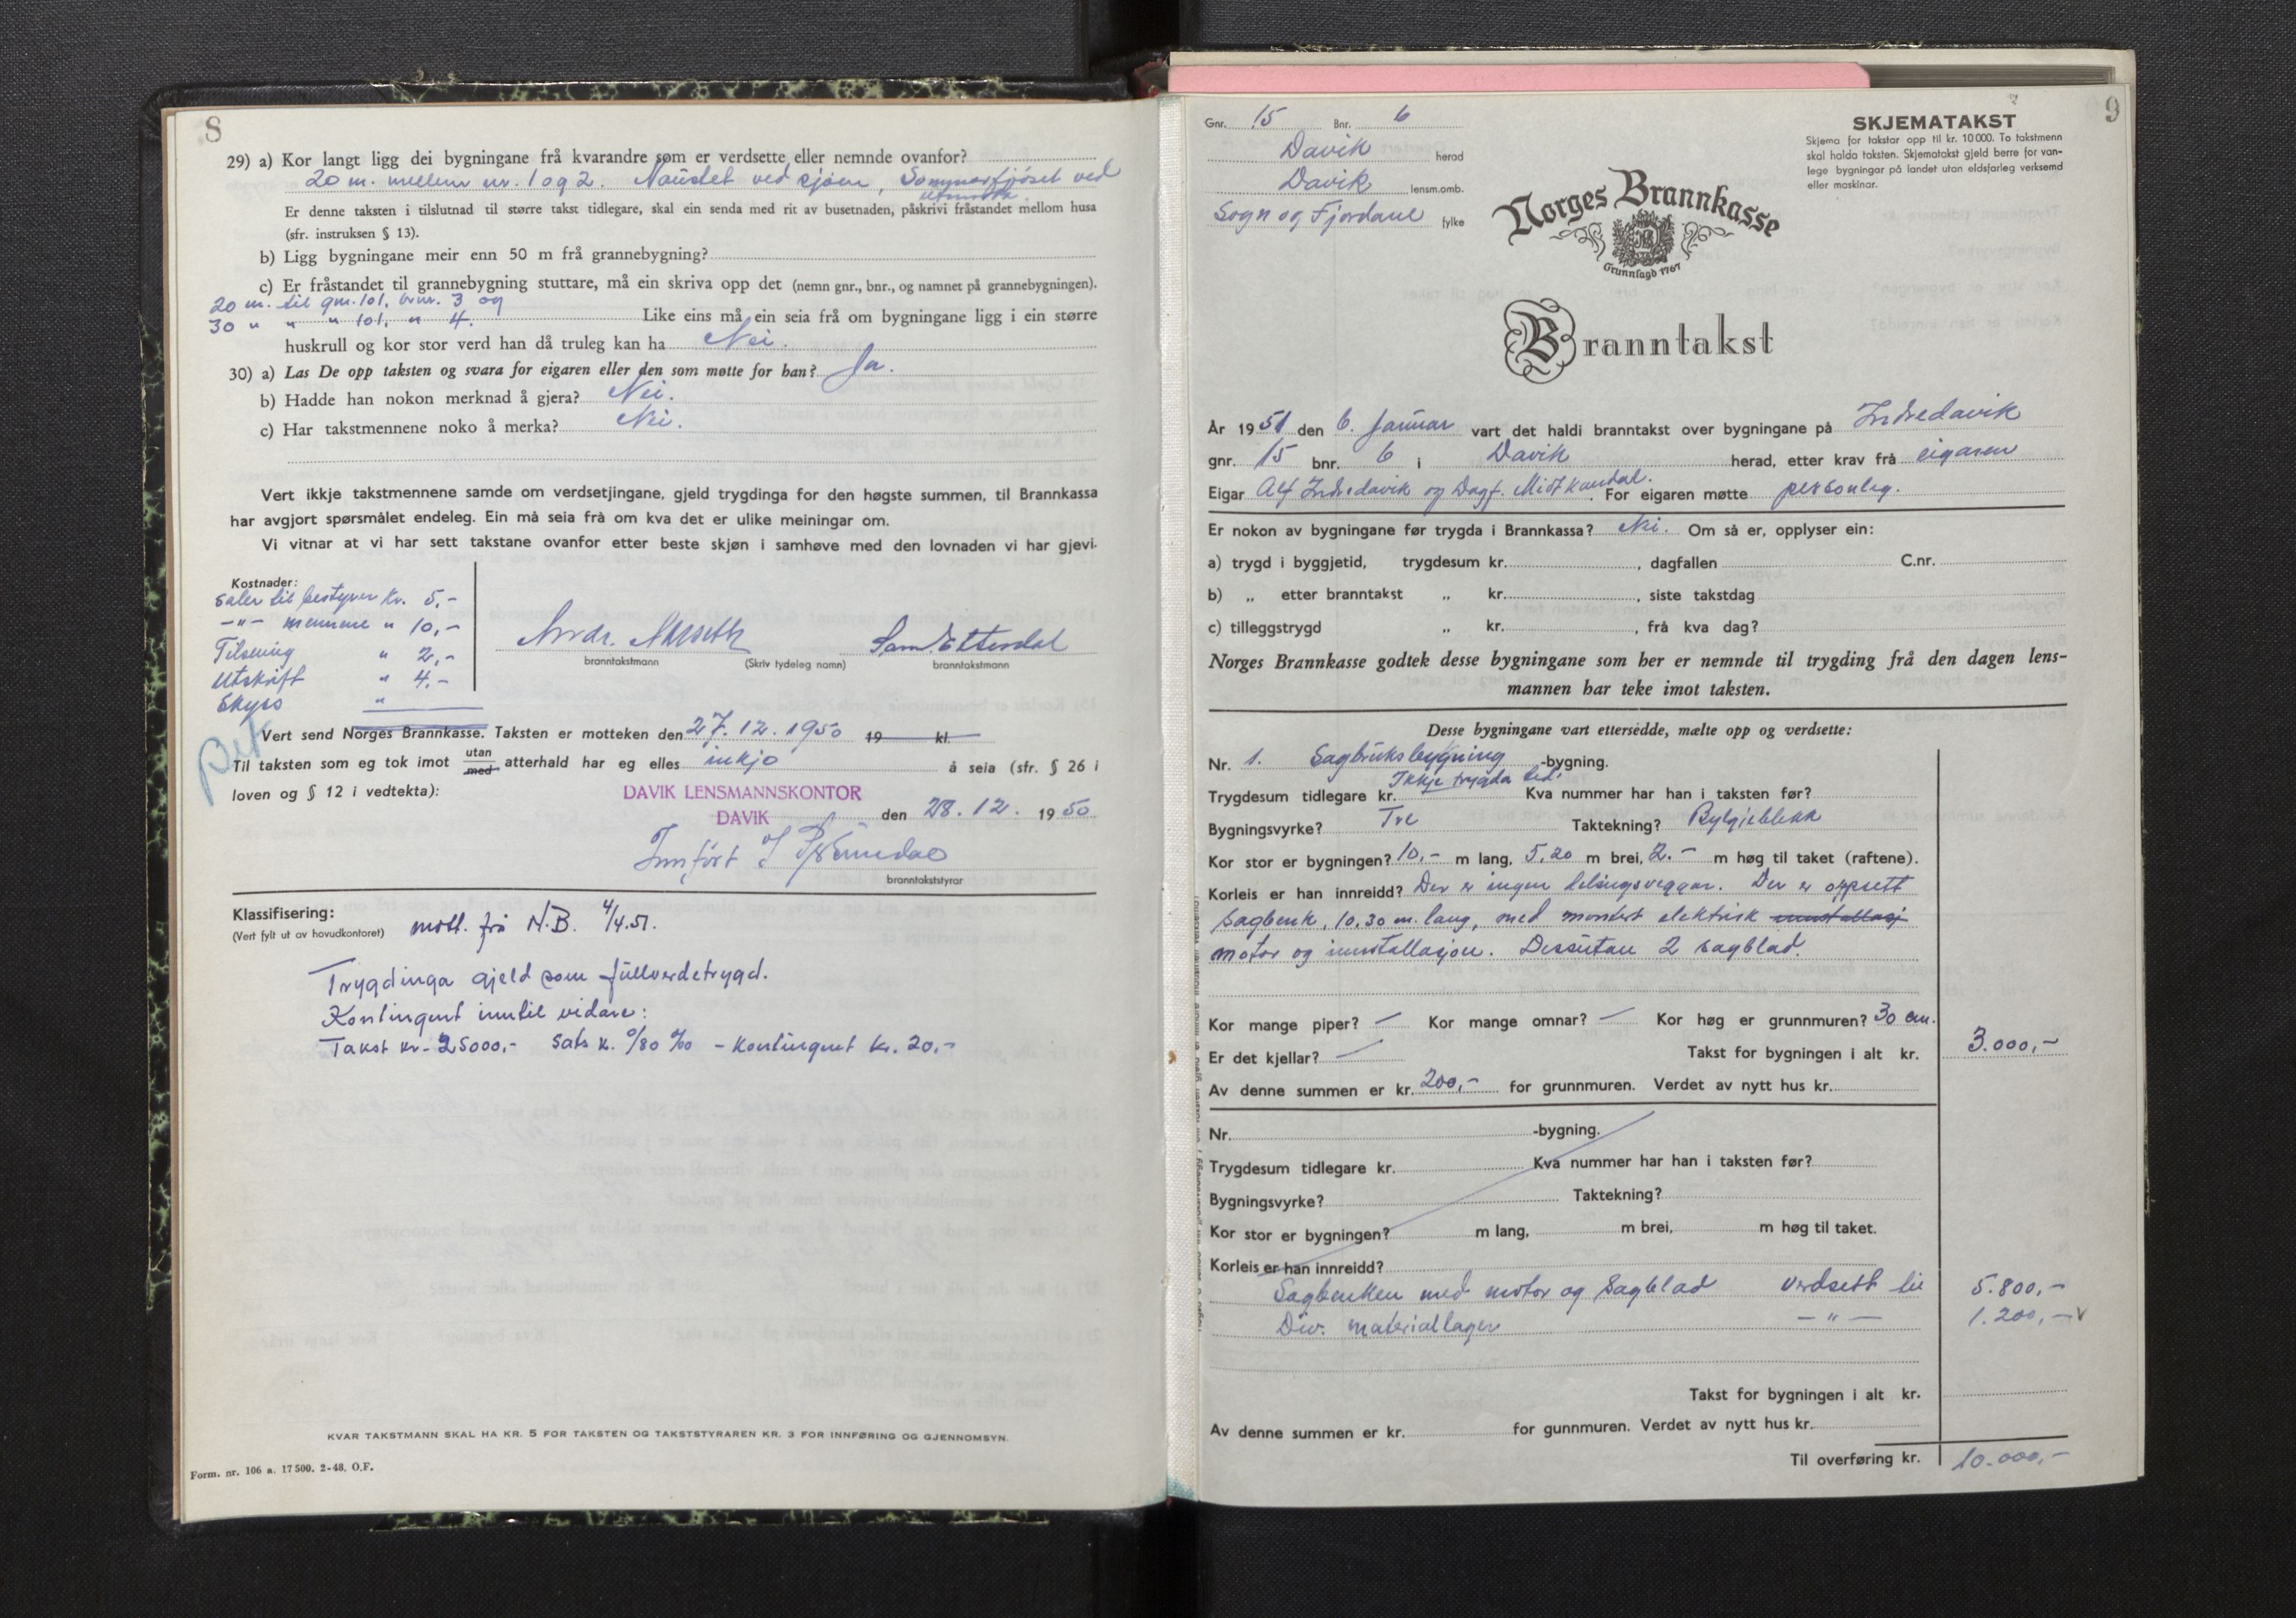 8
29) a) Kor langt ligg dei bygningane frå kvarandre som er verdsette eller nemnde ovanfor?
20 m. mellem nr. 1 og 2. Naustet ved sjøen, Sommarfjøset ved
utmarka
Er denne taksten i tilslutnad til større takst tidlegare, skal ein senda med rit av busetnaden, påskrivi fråstandet mellom husa
(sfr. instruksen § 13).
b) Ligg bygningane meir enn 50 m frå grannebygning?
c) Er fråstandet til grannebygning stuttare, må ein skriva opp det (nemn gnr., bnr., og namnet på grannebygningen).
20 m. til gnr. 101, bnr. 3 og
30 " " " 101, " 4. Like eins må ein seia frå om bygningane ligg i ein større
huskrull og kor stor verd han då truleg kan ha Nei.
30) a) Las De opp taksten og svara for eigaren eller den som møtte for han? Ja.
b) Hadde han nokon merknad å gjera? Nei.
c) Har takstmennene noko å merka? Nei.
Vert ikkje takstmennene samde om verdsetjingane, gjeld trygdinga for den høgste summen, til Brannkassa
har avgjort spørsmålet endeleg. Ein må seia frå om kva det er ulike meiningar om.
Vi vitnar at vi har sett takstane ovanfor etter beste skjøn i samhøve med den lovnaden vi har gjevi.
Kostnader:
Salær til bestyrer kr. 5,-
-"- mennene " 10,-
Tilsening " 2,-
Utskrift " 4.-
Skyss "
branntakstmann (Skriv tydeleg namn) branntakstmann
Vert send Norges Brannkasse. Taksten er motteken den 27.12.1950 19 kl.
Til taksten som eg tok imot utan med atterhald har eg elles inkje å seia (sfr. § 26 i
loven og § 12 i vedtekta):
DAVIK LENSMANNSKONTOR
DAVIK den 28.12. 1950
Innført
branntakststyrar
Klassifisering:
(Vert fylt ut av hovudkontoret) mott. frå N.B. 4/4.51.
Trygdinga gjeld som fullverdetrygd.
Kontingent inntil vidare:
Takst kr. 25000,- Sats k. 0/80 ‰ - kontingent kr. 20,-
KVAR TAKSTMANN SKAL HA KR. 5 FOR TAKSTEN OG TAKSTSTYRAREN KR. 3 FOR INNFØRING OG GJENNOMSYN.
Form. nr. 106 a. 17 500. 2-48. O.F.
9
Gnr. 15 Bnr. 6
Davik herad
Davik lensm.omb.
Sogn og Fjordane fylke
SKJEMATAKST
Skjema for takstar opp til kr. 10 000. To takstmenn
skal halda taksten. Skjematakst gjeld berre for van-
lege bygningar på landet utan eldsfarleg verksemd
eller maskinar.
Norges Brannkasse
Grunnlagd 1767
Branntakst
År 1951 den 6. Januar vart det haldi branntakst over bygningane på Indredavik
gnr. 15 bnr. 6 i Davik herad, etter krav frå eigaren
Eigar Alf Indredavik og Dagf. Midtkandal. For eigaren møtte personleg.
Er nokon av bygningane før trygda i Brannkassa? Nei. Om så er, opplyser ein:
a) trygd i byggjetid, trygdesum kr. , dagfallen C.nr.
b) „ etter branntakst „ kr. , siste takstdag
c) tilleggstrygd „ kr. , frå kva dag?
Norges Brannkasse godtek desse bygningane som her er nemnde til trygding frå den dagen lens-
mannen har teke imot taksten.
Desse bygningane vart ettersédde, mælte opp og verdsette:
Nr. 1. Sagbruksbygning -bygning.
Trygdesum tidlegare kr. Ikkje trygda Kva nummer har han i taksten før?
Bygningsvyrke? Tre Taktekning? Bylgjeblekk
Kor stor er bygningen? 10,- m lang, 5.20 m brei, 2.- m høg til taket (raftene).
Korleis er han innreidd? Der er ingen delingsveggar. Der er oppsett
sagbenk, 10,30 m. lang, med montert elektrisk innstallasj
motor og innstallasjon. Dessutan 2 sagblad.
Kor mange piper? — Kor mange omnar? — Kor høg er grunnmuren? 30 cm.
Er det kjellar? — Takst for bygningen i alt kr. 3.000,-
Av denne summen er kr. 200,- for grunnmuren. Verdet av nytt hus kr.
Nr. -bygning.
Trygdesum tidlegare kr. Kva nummer har han i taksten før?
Bygningsvyrke? Taktekning?
Kor stor er bygningen? m lang, m brei, m høg til taket.
Korleis er han innreidd?
Sagbenken med motor og sagblad verdsett til 5.800,-
Div. materiallager -"- 1.200,-
Takst for bygningen i alt kr.
Av denne summen er kr. for gunnmuren. Verdet av nytt hus kr.
Til overføring kr. 10.000,-